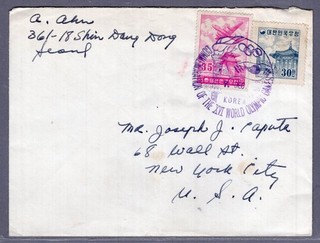 A. Ahn
361-18 Shin Dang Dong
Seoul
35
대한민국우표
30
KOREA
OF THE XVI WORLD OLYMPIC GAMES
Mr. Joseph J. Caputa
68 Wall St.
New York City
U. S. A.